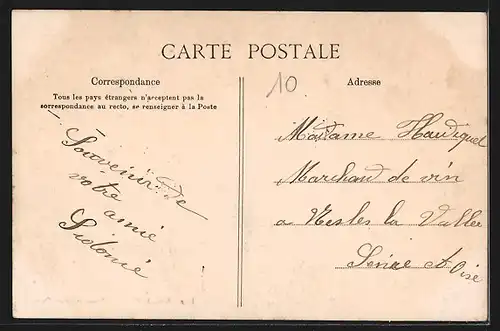 CARTE POSTALE
Correspondance
Tous les pays étrangers n'acceptent pas la
correspondance au recto, se renseigner à la Poste
Adresse
10
Souvenir de
votre amie
Sidonie
Madame Haudiquet
Marchand de vin
a Nesles la Vallée
Seine et Oise